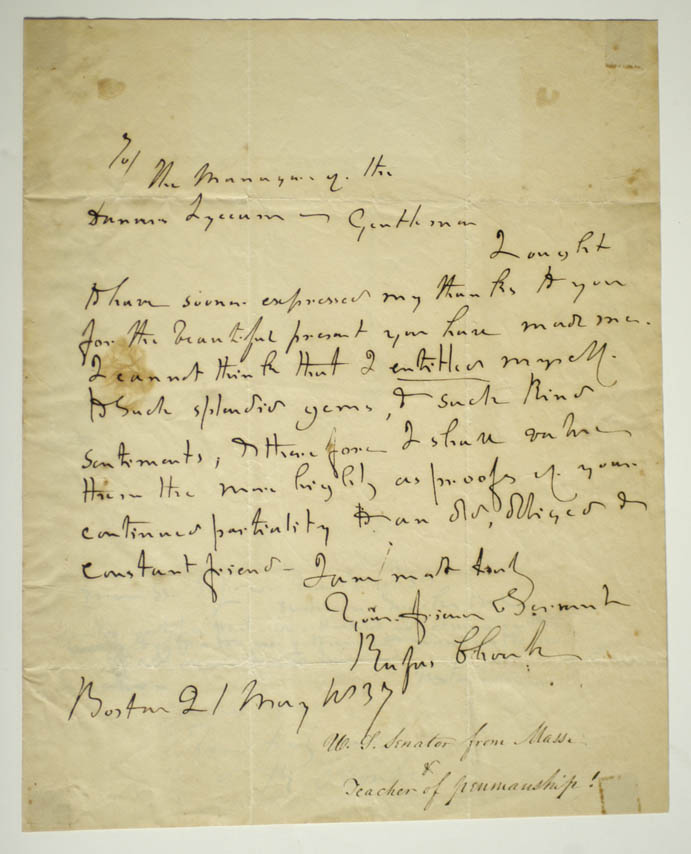 To/
The Managers of the
Danvers Lyceum — Gentlemen
I ought
to have sooner expressed my thanks to you
for the beautiful present you have made me.
I cannot think that I entitled myself
to such splendid gems, & such kind
sentiments, & therefore I shall value
them the more highly as proofs of your
continued partiality to an old, obliged &
constant friend — I am most truly
Your friend & Servant
Rufus Choate
Boston 21 May 1837
U. S. Senator from Mass.
&
Teacher of penmanship!